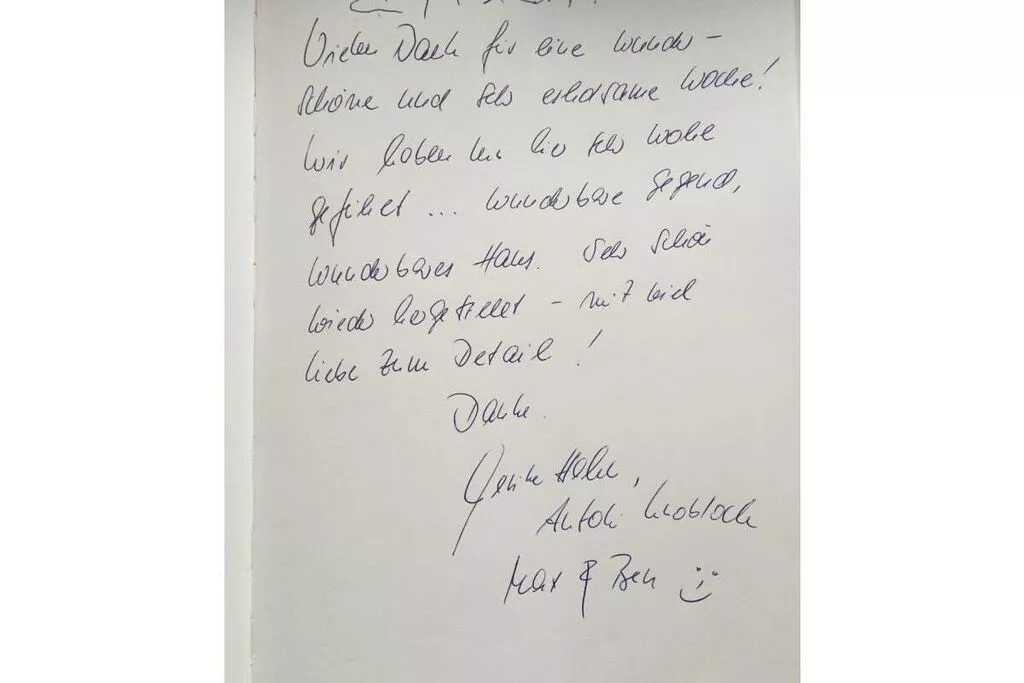 Vielen Dank für eine wunder-
schöne und sehr erholsame Woche!
Wir haben uns hier sehr wohl
gefühlt ... wunderbare Gegend,
wunderbares Haus. Sehr schön
wieder hergestellt – mit viel
Liebe zum Detail!
Danke.
Hahn,
Knobloch
Max & Ben :)